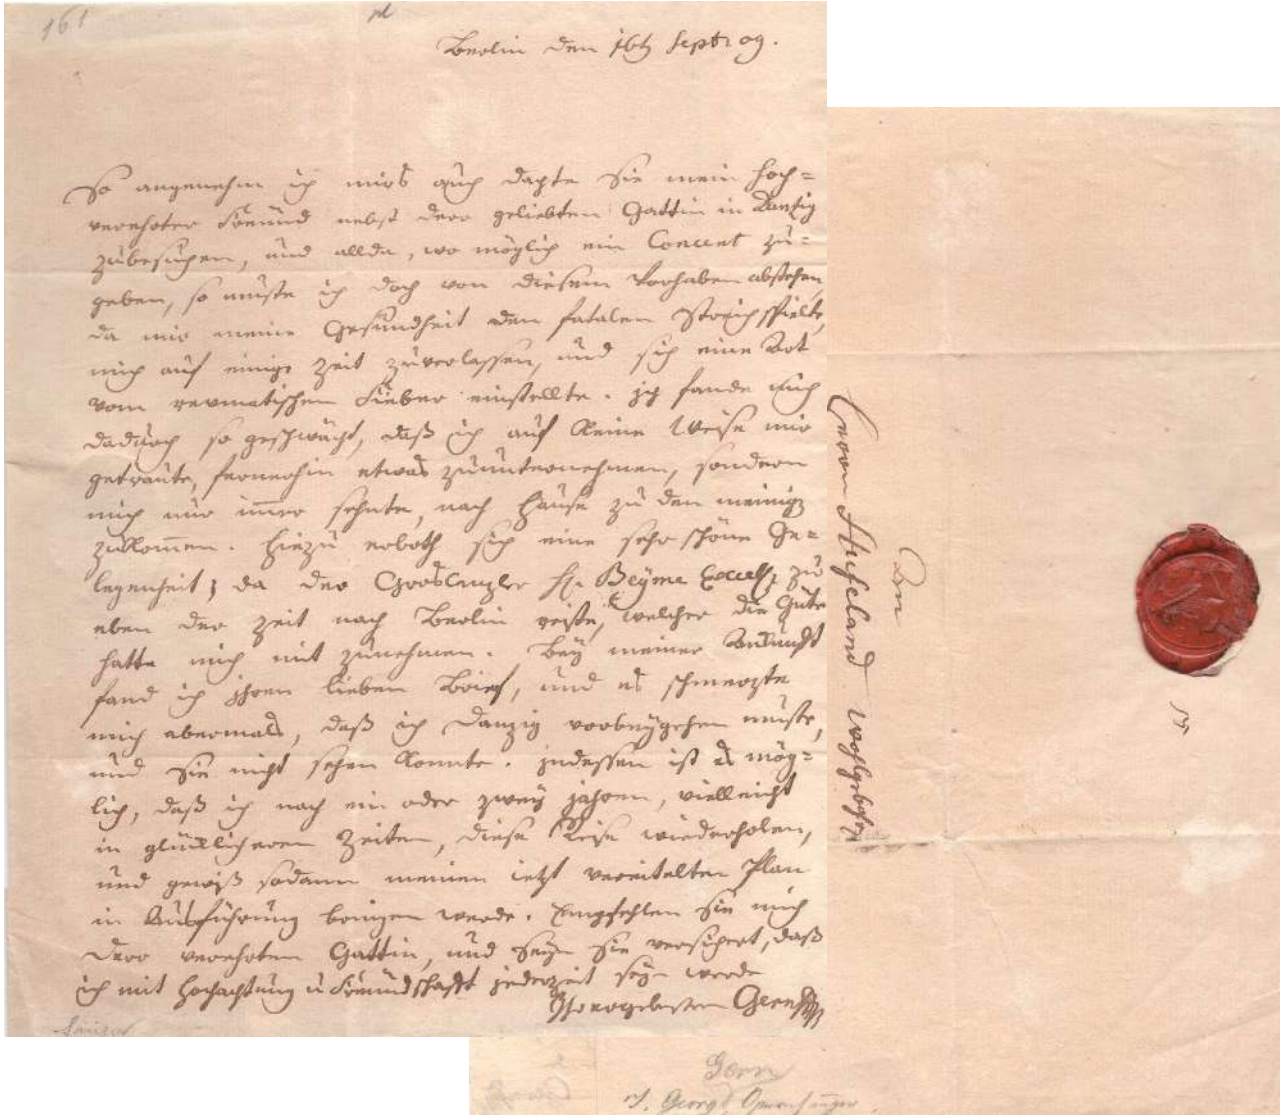 161
Berlin den 16t Septr 09.
So angenehm ich mirs auch dachte Sie mein hoch=
verehrter Freund nebst dero geliebten Gattin in Danzig
zubesuchen, und allda, wo möglich ein Concert zu=
geben, so muste ich doch von diesem Vorhaben abstehen,
da mir meine Gesundheit den fatalen Streich spielte,
mich auf einige Zeit zuverlassen, und sich eine Art
vom revmatischen Fieber einstellte. ich fande mich
dadurch so geschwächt, daß ich auf keine Weise mir
getraute, fernerhin etwas zuunternehmen, sondern
mich nur immer sehnte, nach Hause zu den meinigen
zukommen. Hiezu erboth sich eine sehr schöne Ge=
legenheit; da der Groscanzler H. Beyme Excell. zu
eben der Zeit nach Berlin reiste, welcher die Güte
hatte mich mit zunehmen. Bey meiner Ankunft
fand ich ihren lieben Brief, und es schmerzte
mich abermals, daß ich Danzig vorbeygehen muste,
und Sie nicht sehen konnte. indessen ist es mög=
lich, daß ich nach ein oder zwey jahren, vielleicht
in glücklicheren Zeiten, diese Reise wiederholen,
und gewiß sodann meinen ietzt vereitelten Plan
in Ausführung bringen werde. Empfehlen Sie mich
dero verehrten Gattin, und seyn Sie versichert, daß
ich mit Hochachtung u Freundschafft jederzeit seyn werde
Ihr ergebenster Gern
Sänger
Herrn Hufeland Wohlgebohrn
Gern
Georg Opernsänger